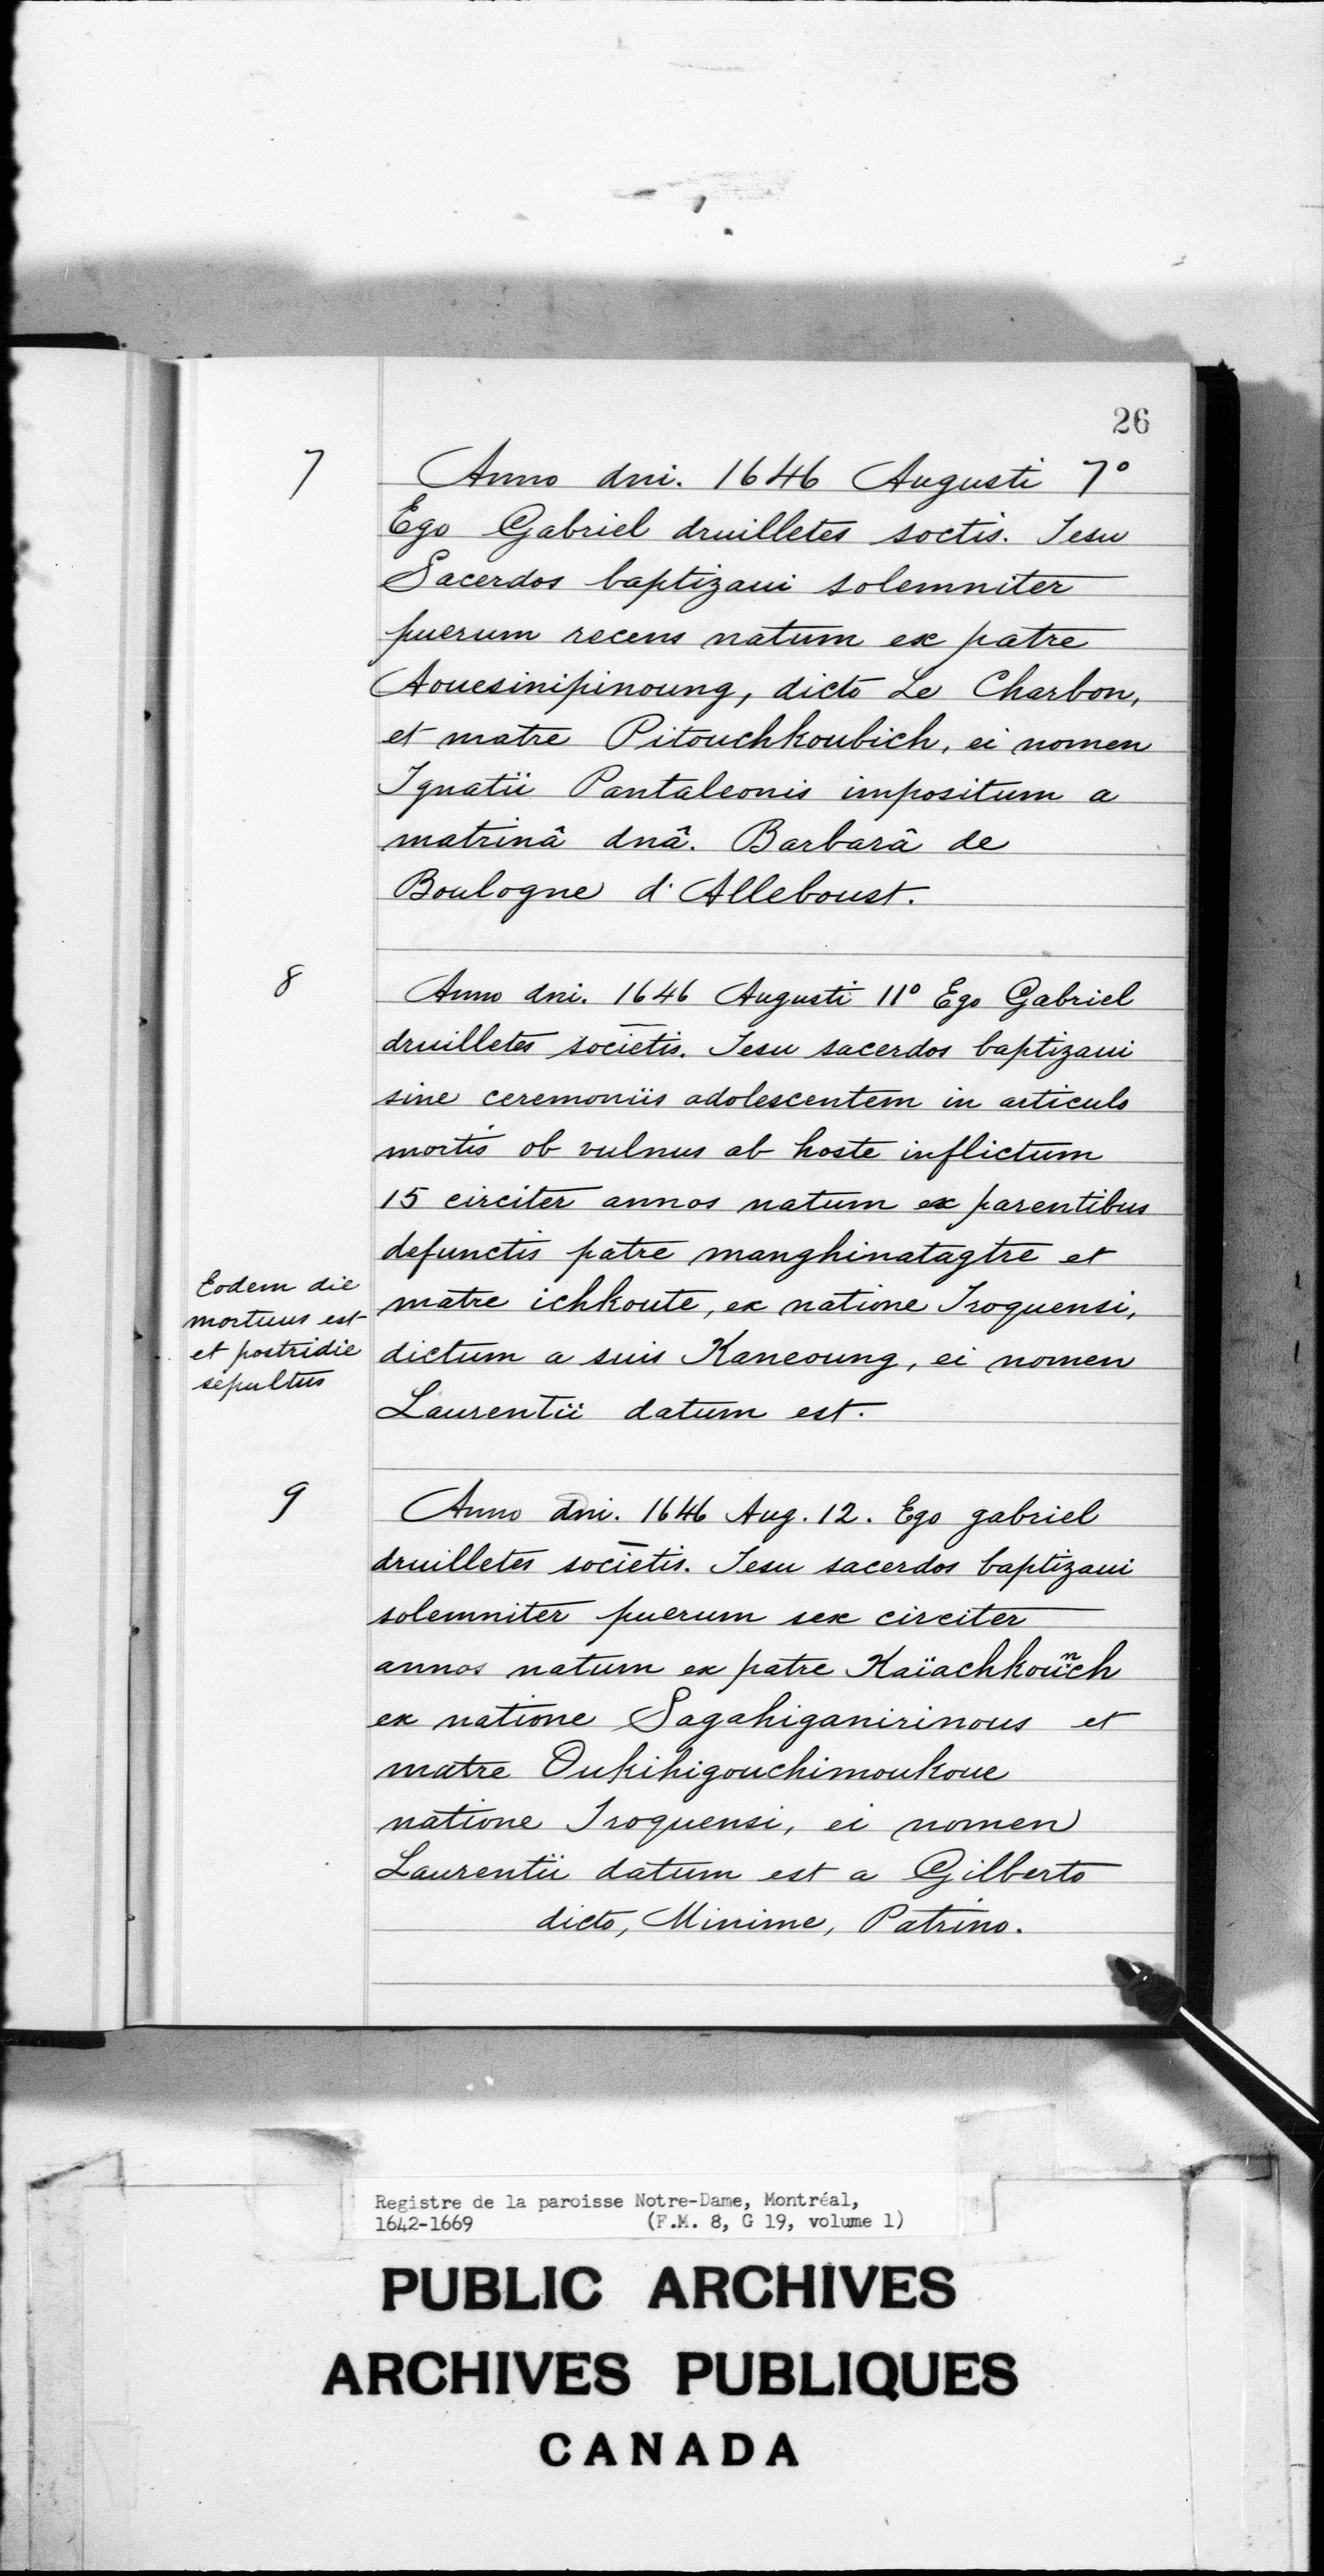 26
7
Anno dni. 1646 Augusti 7°
Ego Gabriel druilletes soctis. Jesu
Sacerdos baptizaui solemniter
puerum recens natum ex patre
Aouesinipinoung, dicto Le Charbon,
et matre Pitouchkoubich, ei nomen
Ignatii Pantaleonis impositum a
matrinâ dnâ. Barbarâ de
Boulogne d'Alleboust.
8
Anno dni. 1646 Augusti 11° Ego Gabriel
druilletes societis. Jesu sacerdos baptizaui
sine ceremoniis adolescentem in articulo
mortis ob vulnus ab hoste inflictum
15 circiter annos natum ex parentibus
defunctis patre manghinatagtre et
matre ichkoute, ex natione Iroquensi,
dictum a suis Kaneoung, ei nomen
Laurentii datum est.
Eodem die
mortuus est
et postridie
sepultus
9
Anno dni. 1646 Aug. 12. Ego gabriel
druilletes societis. Jesu sacerdos baptizaui
solemniter puerum sex circiter
annos natum ex patre Kaïachkounch
ex natione Sagahiganirinous et
matre Oukihigouchimoukoue
natione Iroquensi, ei nomen
Laurentii datum est a Gilberto
dicto, Minime, Patrino.
Registre de la paroisse Notre-Dame, Montréal,
1642-1669 (F.M. 8, G 19, volume 1)
PUBLIC ARCHIVES
ARCHIVES PUBLIQUES
CANADA